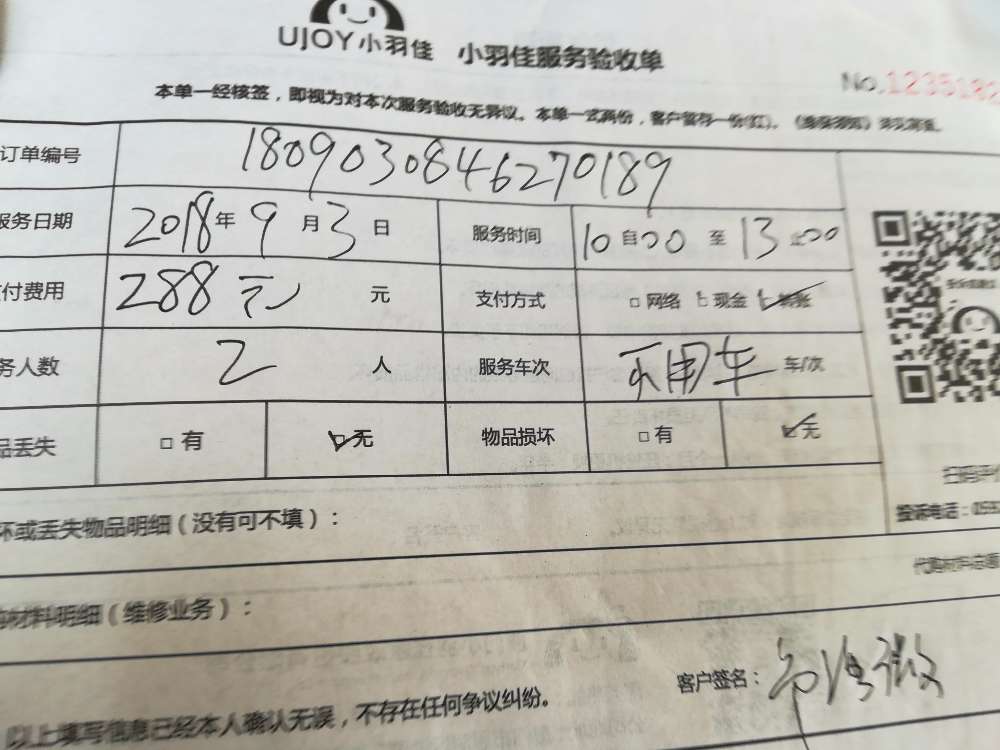 UJOY小羽佳 小羽佳服务验收单
No.1235182
本单一经核签，即视为对本次服务验收无异议。本单一式两份，客户留存一份(红)。
订单编号 180903084627018９
服务日期 2018年9月3日 服务时间 10自00至13至00
付费用 288元 元 支付方式 □网络 □现金 ☑转账
务人数 2 人 服务车次 不用车 车/次
品丢失 □有 ☑无 物品损坏 □有 ☑无
坏或丢失物品明细（没有可不填）：
材料明细（维修业务）：
客户签名：
以上填写信息已经本人确认无误，不存在任何争议纠纷。